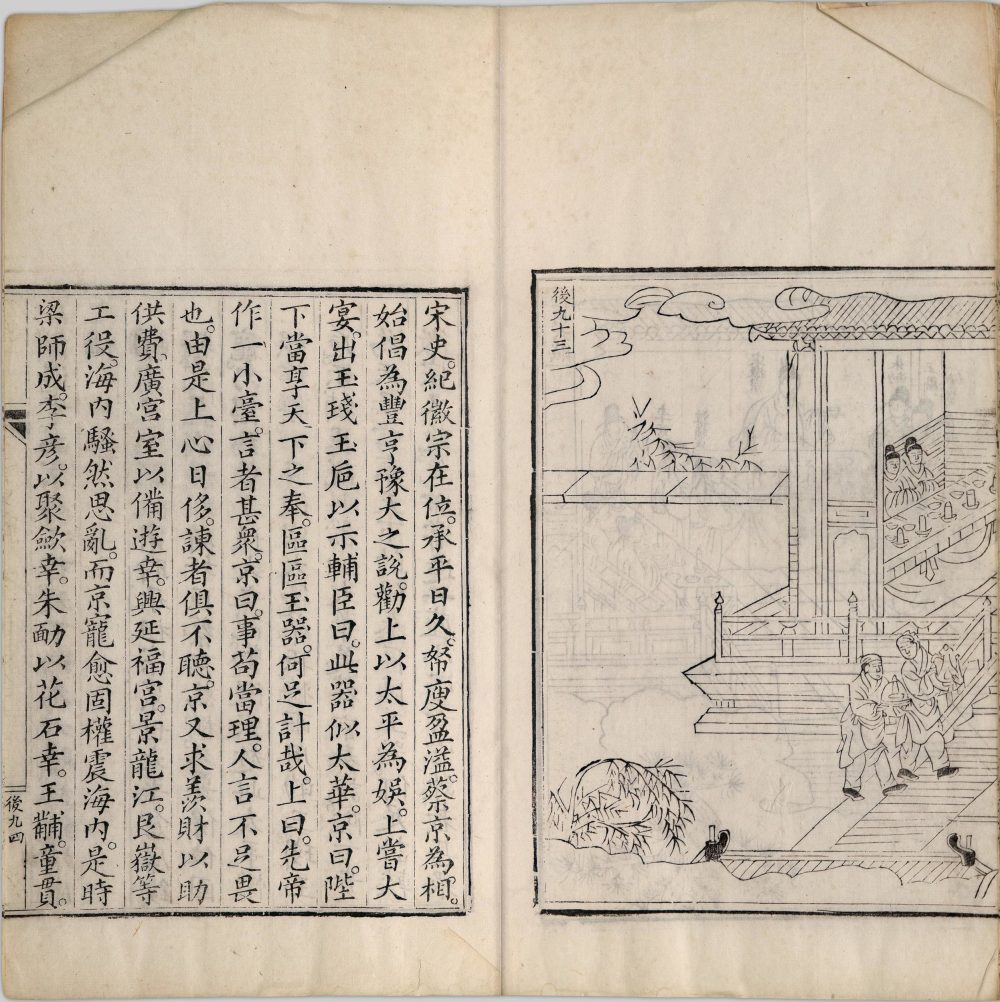 後九十三
宋史。紀徽宗在位。承平日久。帑廋盈溢。蔡京為相。
始倡為豐亨豫大之說。勸上以太平為娛。上嘗大
宴。出玉琖玉巵以示輔臣曰。此器似太華。京曰。陛
下當享天下之奉。區區玉器。何足計哉。上曰。先帝
作一小臺。言者甚衆。京曰。事苟當理。人言不足畏
也。由是上心日侈。諫者俱不聽。京又求羨財以助
供費。廣宫室以備遊幸。興延福宫。景龍江。艮嶽等
工役。海内騷然思亂。而京寵愈固。權震海内。是時
梁師成。李彦。以聚歛幸。朱勔以花石幸。王黼。童貫。
後九四